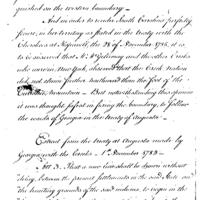 guished on the western boundary.
And in order to render South Carolina perfectly
secure, in her territory as stated in the treaty with the
Cherokees at Hopewell, the 28 of November 1785, it is
to be observed that Mr McGillivray and the other Creeks
at New York, observed that the Creek nation
did not claim farther northward than the foot of the
mountains. But notwithstanding this opinion
it was thought safest in fixing the boundary, to follow
the words of Georgia in the treaty of Augusta.
Extract from the treaty at Augusta made by
Georgia with the Creeks. 1st November 1783.
Art. 3. That a new line shall be drawn without
delay, between the present settlements in the said state and
the hunting grounds of the said indians, to begin in the